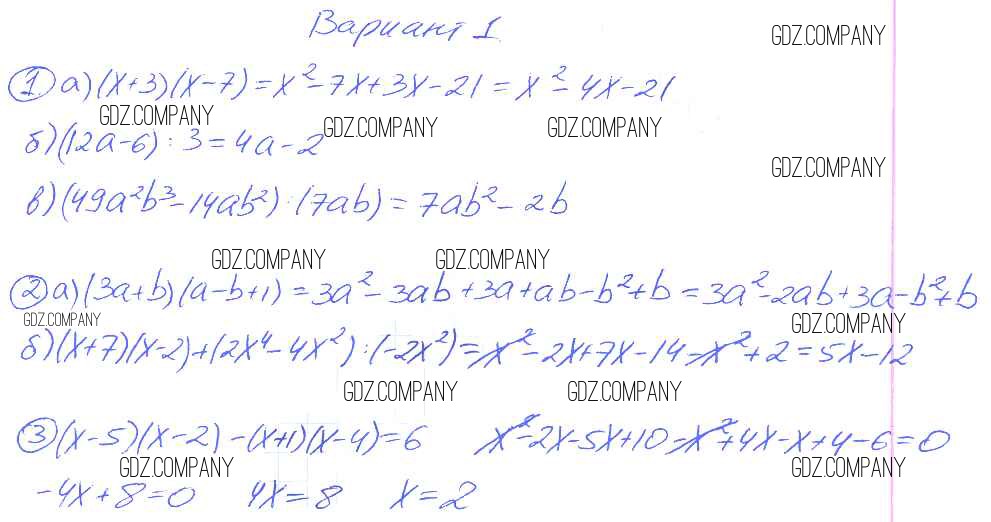 Вариант 1
GDZ.COMPANY
① а) (x+3)(x-7) = x² - 7x + 3x - 21 = x² - 4x - 21
GDZ.COMPANY GDZ.COMPANY GDZ.COMPANY
б) (12a-6) : 3 = 4a - 2
GDZ.COMPANY
в) (49a²b³ - 14ab²) : (7ab) = 7ab² - 2b
GDZ.COMPANY GDZ.COMPANY
② а) (3a+b)(a-b+1) = 3a² - 3ab + 3a + ab - b² + b = 3a² - 2ab + 3a - b² + b
GDZ.COMPANY GDZ.COMPANY
б) (x+7)(x-2) + (2x⁴ - 4x²) : (-2x²) = x² - 2x + 7x - 14 - x² + 2 = 5x - 12
GDZ.COMPANY GDZ.COMPANY
③ (x-5)(x-2) - (x+1)(x-4) = 6 x² - 2x - 5x + 10 - x² + 4x - x + 4 - 6 = 0
GDZ.COMPANY GDZ.COMPANY
-4x + 8 = 0 4x = 8 x = 2